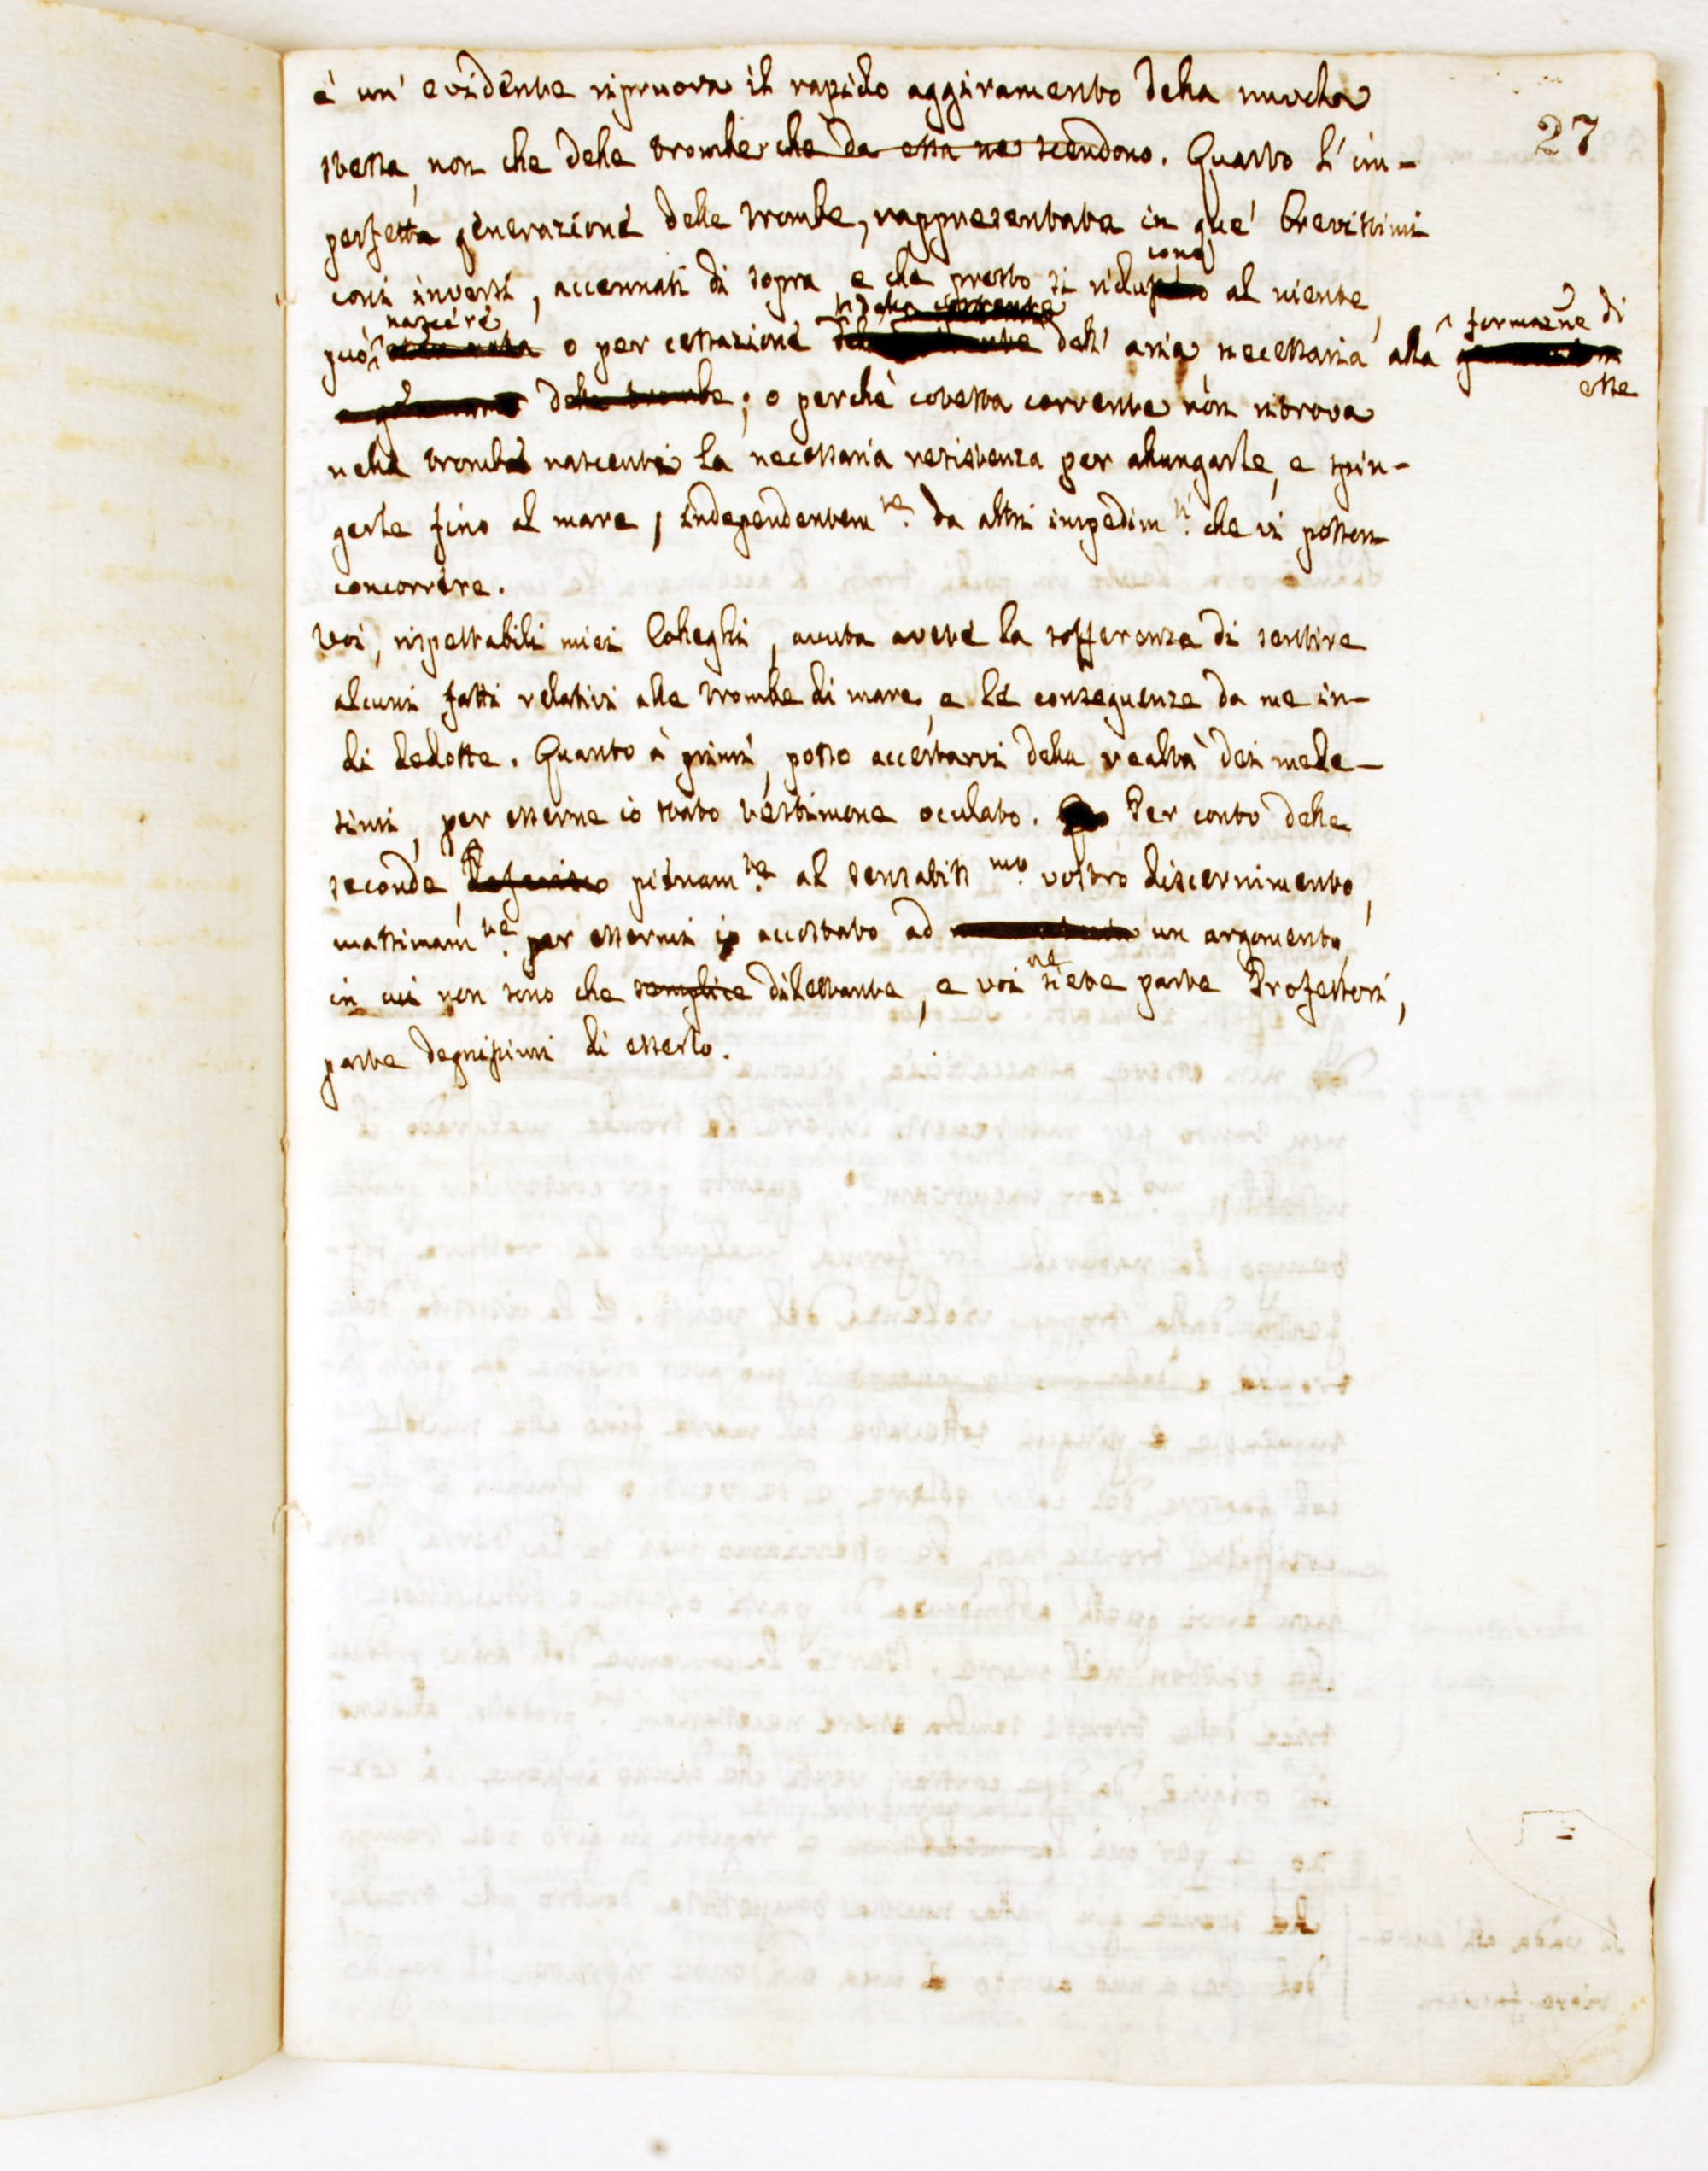 27
è un' evidente ripruova il rapido aggiramento della nuvola
stessa, non che delle trombe che da essa ne scendono. Quarto l' im-
perfetta generazione delle trombe, rappresentata in que' brevissimi
coni inversi, accennati di sopra, e che presto si riducono al niente,
può nascere o per cessazione dell' aria necessaria alla formazne di esse
delle trombe; o perchè cotesta corrente non ritrova
nella tromba nascente la necessaria resistenza per allungarle, e spin-
gerle fino al mare, independentemte. da altri impedimti. che vi posson
concorrere.
Voi, rispettabili miei Colleghi, avuta avete la sofferenza di sentire
alcuni fatti relativi alle trombe di mare, e le conseguenze da me in-
di dedotte. Quanto à primi, posso accertarvi della realtà dei mede-
simi, per esserne io stato testimone oculato. Per conto delle
seconde, pienamte. al sensatissmo. vostro discernimento,
massimamte. per essermi io accostato ad un argomento,
in cui non sono che semplice dilettante, e voi ne siete parte Professori,
parte degnissimi di esserlo.